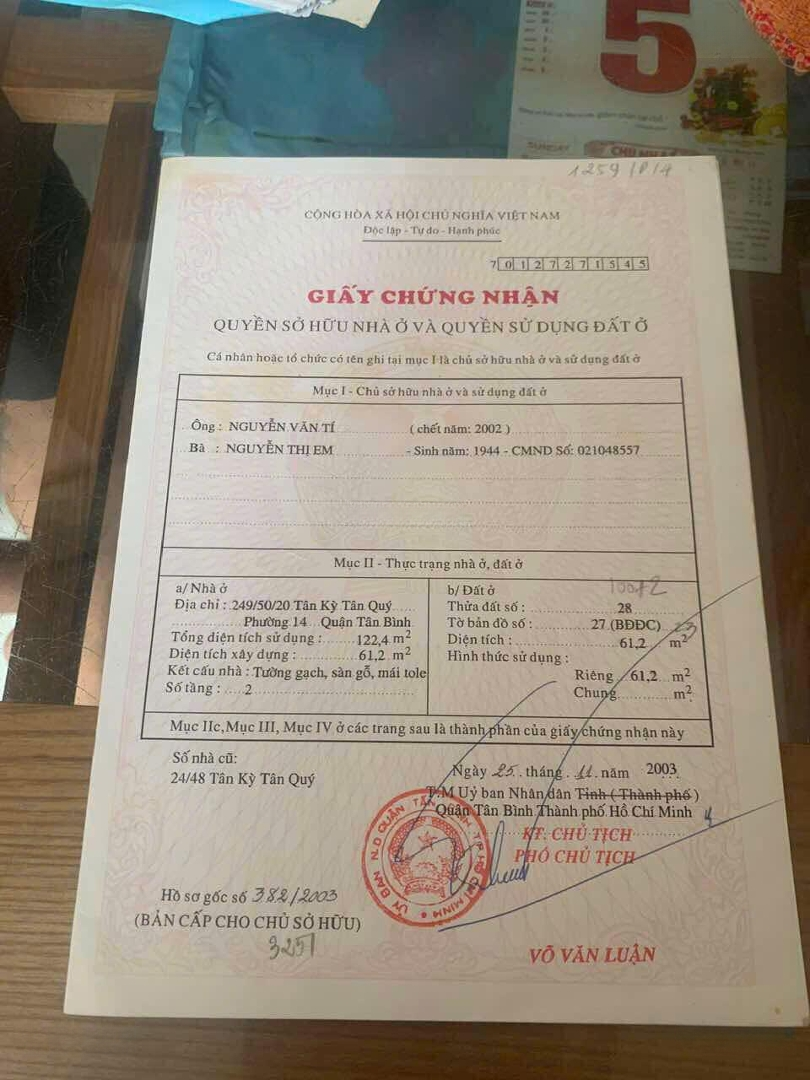 5
SUNDAY
CHỦ NHẬT
1259/P/4
CỘNG HÒA XÃ HỘI CHỦ NGHĨA VIỆT NAM
Độc lập - Tự do - Hạnh phúc
7 0 1 2 7 2 7 1 5 4 5
GIẤY CHỨNG NHẬN
QUYỀN SỞ HỮU NHÀ Ở VÀ QUYỀN SỬ DỤNG ĐẤT Ở
Cá nhân hoặc tổ chức có tên ghi tại mục I là chủ sở hữu nhà ở và sử dụng đất ở
Mục I - Chủ sở hữu nhà ở và sử dụng đất ở
Ông : NGUYỄN VĂN TÍ ( chết năm: 2002 )
Bà : NGUYỄN THỊ EM - Sinh năm: 1944 - CMND Số: 021048557
Mục II - Thực trạng nhà ở, đất ở
a/ Nhà ở
Địa chỉ : 249/50/20 Tân Kỳ Tân Quý
Phường 14 Quận Tân Bình
Tổng diện tích sử dụng : 122,4 m²
Diện tích xây dựng : 61,2 m²
Kết cấu nhà : Tường gạch, sàn gỗ, mái tole
Số tầng : 2
b/ Đất ở
Thửa đất số : 28
Tờ bản đồ số : 27 (BĐĐC) 23
Diện tích : 61,2 m²
Hình thức sử dụng :
Riêng 61,2 m²
Chung m²
Mục IIc, Mục III, Mục IV ở các trang sau là thành phần của giấy chứng nhận này
Số nhà cũ:
24/48 Tân Kỳ Tân Quý
Ngày 25 tháng 11 năm 2003
T.M Uỷ ban Nhân dân Tỉnh ( Thành phố )
Quận Tân Bình Thành phố Hồ Chí Minh
KT. CHỦ TỊCH
PHÓ CHỦ TỊCH
ỦY BAN N.D QUẬN TÂN BÌNH T.P HỒ CHÍ MINH
Hồ sơ gốc số 382/2003
(BẢN CẤP CHO CHỦ SỞ HỮU)
3251
VÕ VĂN LUẬN